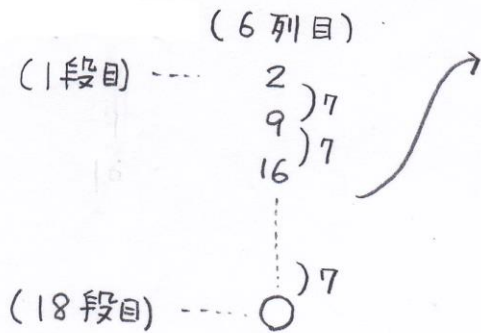 (6列目)
(1段目) ----- 2
)7
9
)7
16
)7
(18段目) ----- ○